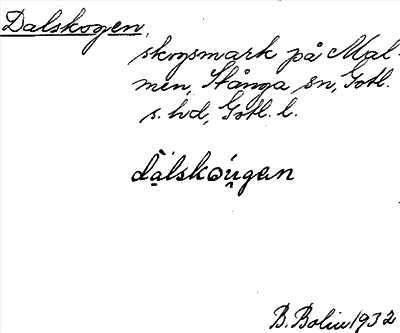 Dalskogen,
skogsmark på Mal-
men, Stånga sn, Gotl.
s. hd, Gotl. l.
dà̱lskoú̯gən
B. Bolin 1932